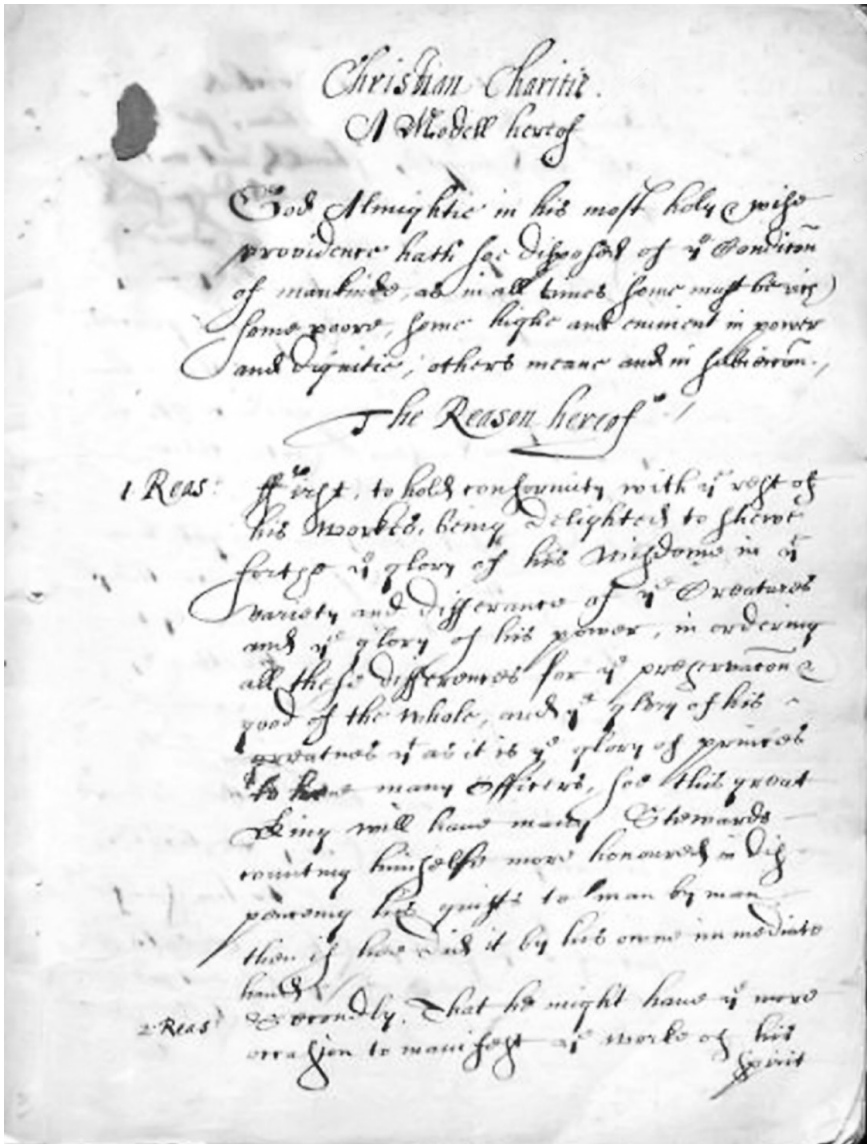 Christian Charitie.
A Modell hereof
God Almightie in his most holy & wise
providence hath soe disposed of yͤ Condic̃on
of mankinde, as in all times some must be rich
some poore, some highe and eminent in power
and dignitie; others meane and in subiecc̃on.
The Reason hereof.
1 Reas: ffirst, to hold conformity with yͤ rest of
his workes, being delighted to shewe
forthe yͤ glory of his wisdome in yͤ
variety and differance of yͤ Creatures
and yͤ glory of his power, in ordering
all these differences for yͤ preservac̃on &
good of the whole, and yͤ glory of his
greatnes yͭ as it is yͤ glory of princes
to haue many officers, soe this great
King will haue many Stewards
counting himselfe more honoured in dis
penceing his guifts to man by man
then if hee did it by his owne immediate
hand
2 Reas Secondly. That he might haue yͤ more
occasion to manifest yͤ worke of his
spirit